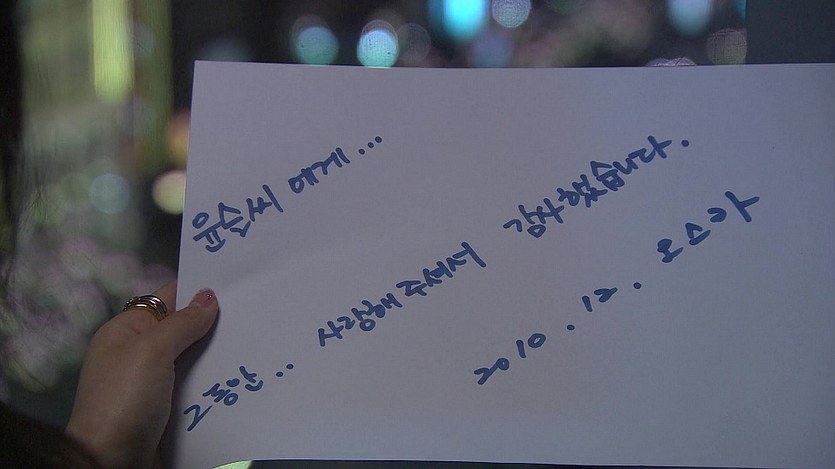 윤슬씨 에게...
그동안.. 사랑해 주셔서 감사했습니다.
2010.12. 오스카